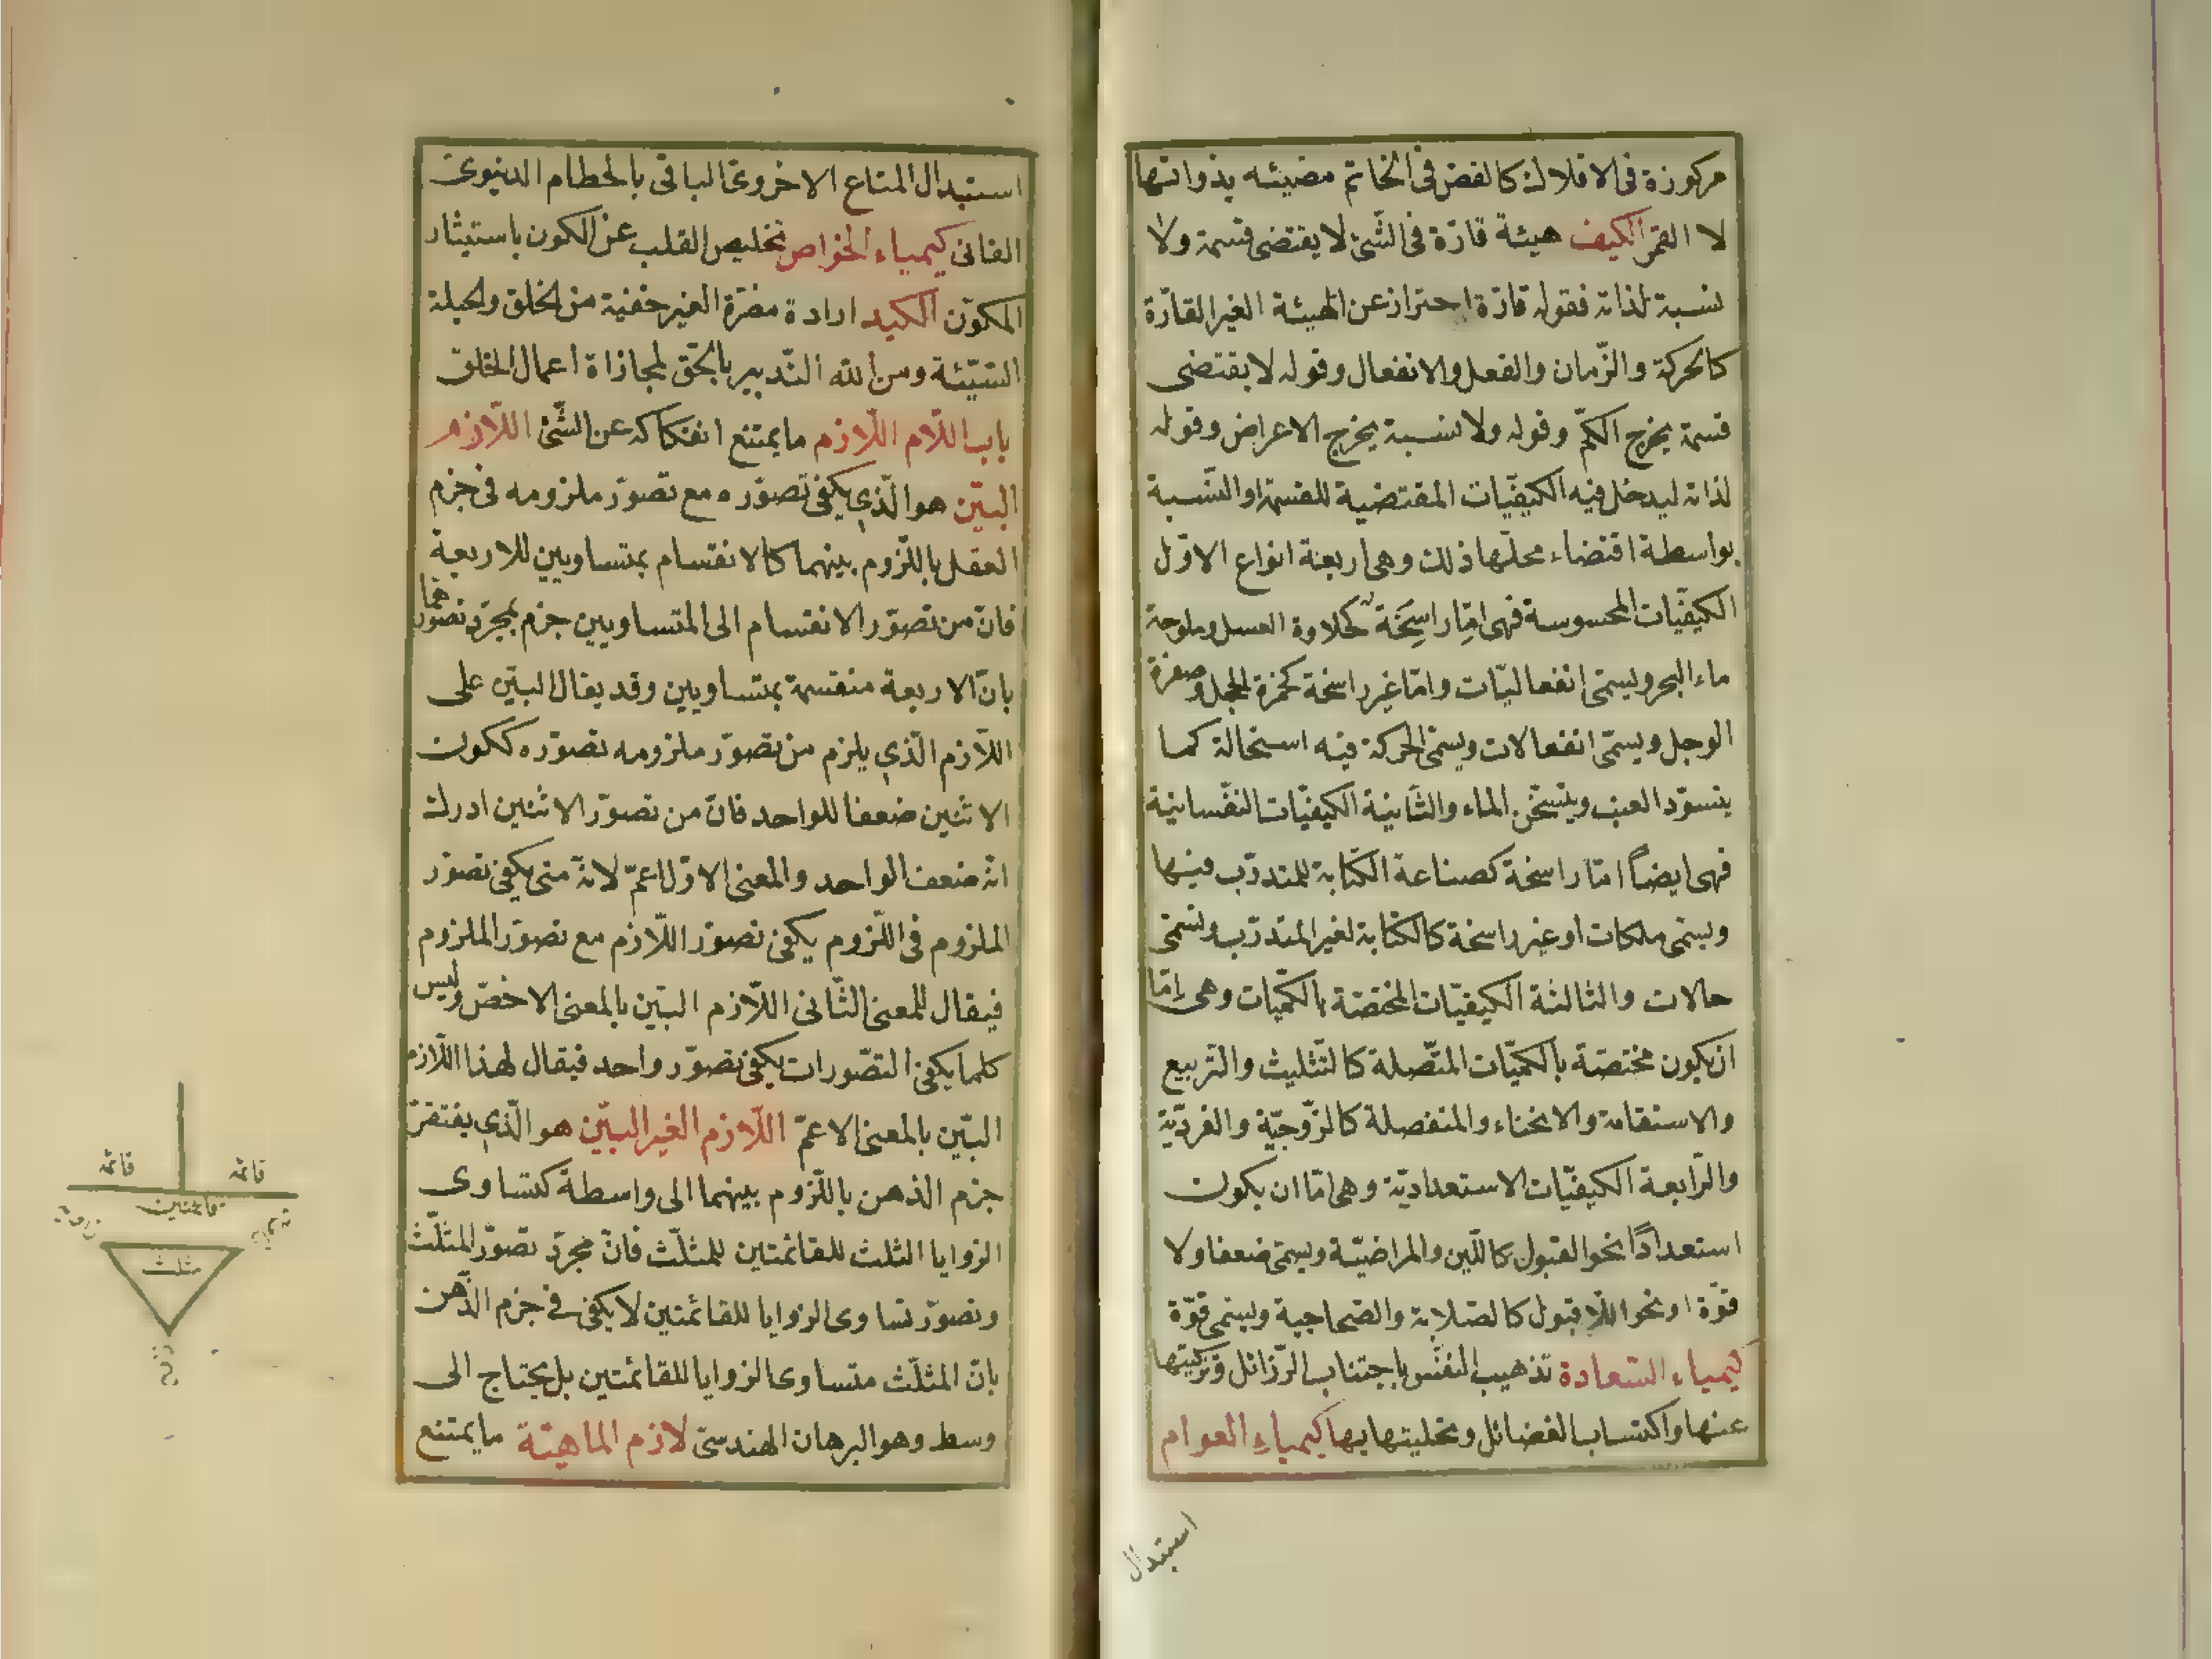 مركوزة فى الافلاك كالفص فى الخاتم مضيئه بذواتها
لا القمر الكيف هيئة قارّة فى الشّئ لا يقتضى قسمة ولا
نسبة لذاته فقوله قارّة احتراز عن الهيئة الغير القارّة
كالحركة والزّمان والفعل والانفعال وقوله لا يقتضى
قسمة يخرج الكمّ وقوله ولا نسبة يخرج الاعراض وقوله
لذاته ليدخل فيه الكيفيّات المقتضية للقسمة او النّسبة
بواسطة اقتضاء محلّها ذلك وهى اربعة انواع الاوّل
الكيفيّات المحسوسة فهى امّا راسخة كحلاوة العسل وملوحة
ماء البحر ويسمّى انفعاليّات وامّا غير راسخة كحمرة الخجل وصفرة
الوجل ويسمّى انفعالات ويسمّى الحركة فيه استحالة كما
يتسوّد العنب ويتسخّن الماء والثّانية الكيفيّات النفّسانية
فهى ايضاً امّا راسخة كصناعة الكتابة للمتدرّب فيها
ويسمّى ملكات او غير راسخة كالكتابة لغير المتدرّب ويسمّى
حالات والثالثة الكيفيّات المختصّة بالكمّيات وهى امّا
ان يكون مختصّة بالكميّات المتّصلة كالتّثليث والتّربيع
والاستقامة والانحناء والمنفصلة كالزّوجيّة والفرديّة
والرّابعة الكيفيّات الاستعداديّة وهى امّا ان يكون
استعداداً نحو القبول كاللّين والمراضيّة ويسمّى ضعفا ولا
قوّة او نحو اللّا قبول كالصّلابة والصّحاحية ويسمّى قوّة
كيمياء السّعادة تذهيب النفّس باجتناب الرّزائل وتزكيتها
عنها واكتساب الفضائل وتحليتها بها كيمياء العوام
استبدال
استبدال المتاع الاخروىّ الباقى بالحطام الدنيوىّ
الفانى كيمياء الخواص تخليص القلب عن الكون باستيثار
المكوّن الكيد ارادة مضرّة الغير خفية من الخلق والحيلة
السّيّئة ومن الله التّدبير بالحقّ لمجازاة اعمال الخلق
باب اللّام اللّازم ما يمتنع انفكاكه عن الشّئ اللّازم
البيّن هو الّذى يكفى تصوّره مع تصوّر ملزومه فى جزم
العقل باللّزوم بينهما كالانقسام بمتساويين للاربعة
فانّ من تصوّر الانقسام الى المتساويين جزم بمجرّد تصوّرهما
بانّ الاربعة منقسمة بمتساويين وقد يقال البيّن على
اللّازم الّذى يلزم من تصوّر ملزومه تصوّره ككون
الاثنين ضعفا للواحد فانّ من تصوّر الاثنين ادرك
انّه ضعف الواحد والمعنى الاوّل اعمّ لانّه متى يكفى تصوّر
الملزوم فى اللّزوم يكفى تصوّر اللّازم مع تصوّر الملزوم
فيقال للمعنى الثّانى اللّازم البيّن بالمعنى الاخصّ وليس
كلما يكفى التصّورات يكفى تصوّر واحد فيقال لهذا اللّازم
البيّن بالمعنى الاعمّ اللّازم الغير البيّن هو الّذى يفتقر
جزم الذهن باللّزوم بينهما الى واسطة كتساوى
الزوايا الثلث للقائمتين للمثلّث فانّ مجرّد تصوّر المثلّث
وتصوّر تساوى الزوايا للقائمتين لا يكفى فى جزم الذّهن
بانّ المثلّث متساوى الزوايا للقائمتين بل يحتاج الى
وسط وهو البرهان الهندسىّ لازم الماهيّة ما يمتنع
قائمه
قائمه
قائمتين
زاويه
مثلث